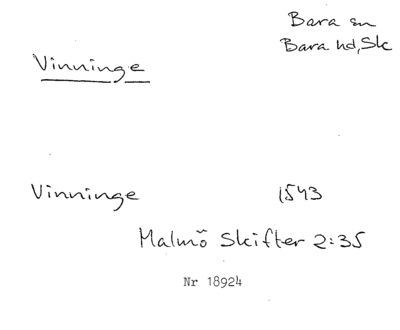 Bara sn
Bara hd, Sk
Vinninge
Vinninge 1543
Malmö Skifter 2:35
Nr 18924